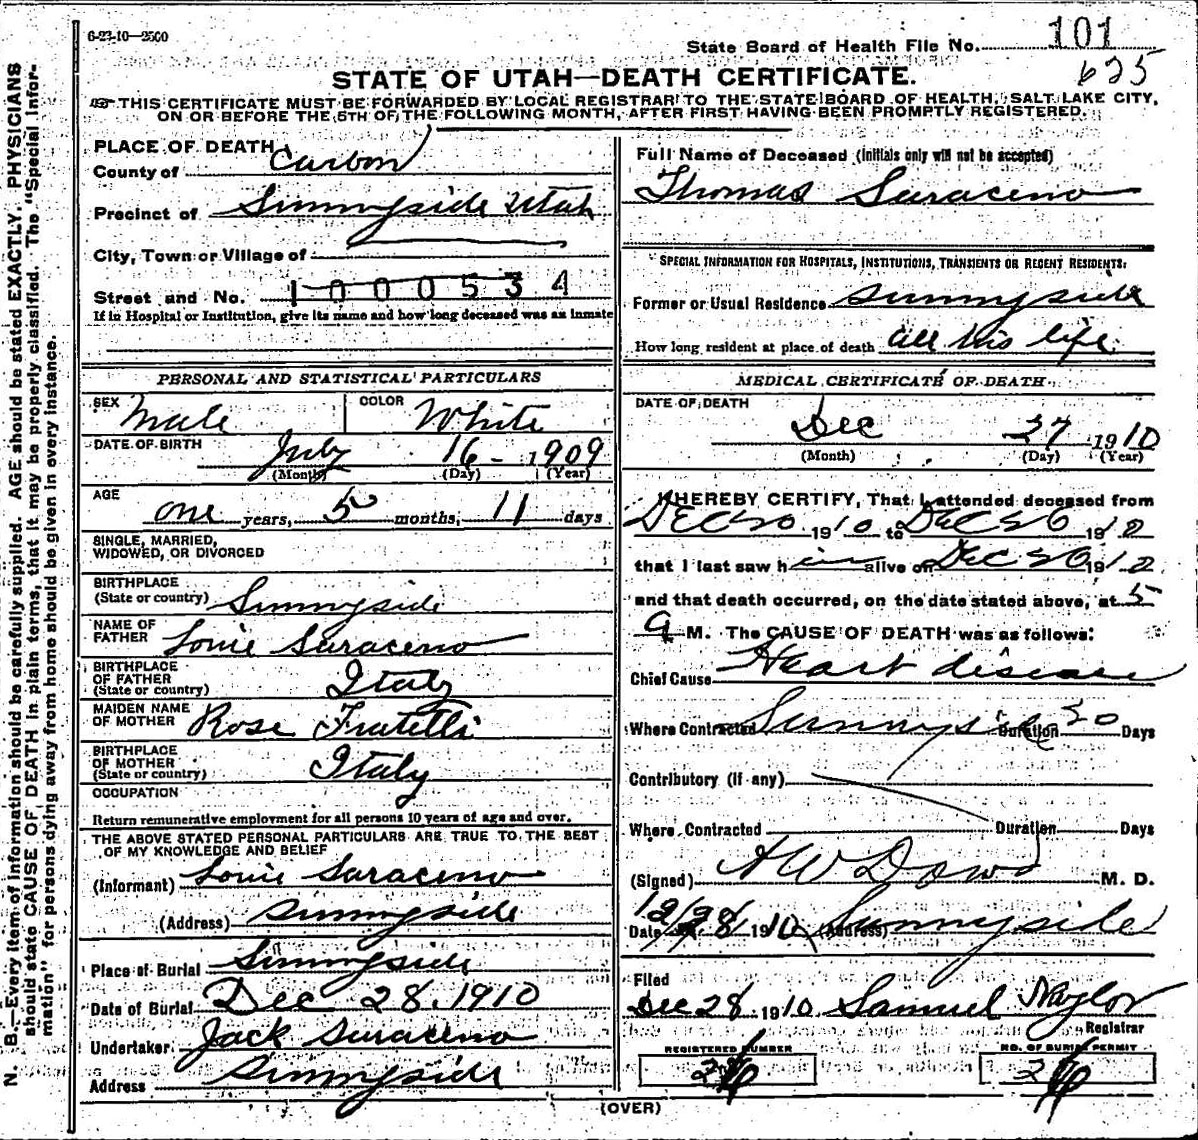 6-23-10—2500
State Board of Health File No. 101
625
STATE OF UTAH—DEATH CERTIFICATE.
THIS CERTIFICATE MUST BE FORWARDED BY LOCAL REGISTRAR TO THE STATE BOARD OF HEALTH, SALT LAKE CITY,
ON OR BEFORE THE 5TH OF THE FOLLOWING MONTH, AFTER FIRST HAVING BEEN PROMPTLY REGISTERED.
N. B.—Every item of information should be carefully supplied. AGE should be stated EXACTLY. PHYSICIANS
should state CAUSE OF DEATH in plain terms, that it may be properly classified. The "Special Infor-
mation" for persons dying away from home should be given in every instance.
PLACE OF DEATH
County of Carbon
Precinct of Sunnyside Utah
City, Town or Village of
Street and No. 1000534
If in Hospital or Institution, give its name and how long deceased was an inmate
PERSONAL AND STATISTICAL PARTICULARS
SEX Male COLOR White
DATE OF BIRTH July 16 - 1909
(Month) (Day) (Year)
AGE
one years, 5 months, 11 days
SINGLE, MARRIED,
WIDOWED, OR DIVORCED
BIRTHPLACE
(State or country) Sunnyside
NAME OF
FATHER Louie Saraceno
BIRTHPLACE
OF FATHER
(State or country) Italy
MAIDEN NAME
OF MOTHER Rose Fratelli
BIRTHPLACE
OF MOTHER
(State or country) Italy
OCCUPATION
Return remunerative employment for all persons 10 years of age and over.
THE ABOVE STATED PERSONAL PARTICULARS ARE TRUE TO THE BEST
OF MY KNOWLEDGE AND BELIEF
(Informant) Louie Saraceno
(Address) Sunnyside
Place of Burial Sunnyside
Date of Burial Dec 28. 1910
Undertaker Jack Saraceno
Address Sunnyside
Full Name of Deceased (Initials only will not be accepted)
Thomas Saraceno
SPECIAL INFORMATION FOR HOSPITALS, INSTITUTIONS, TRANSIENTS OR RECENT RESIDENTS:
Former or Usual Residence Sunnyside
How long resident at place of death all his life
MEDICAL CERTIFICATE OF DEATH
DATE OF DEATH
Dec 27 1910
(Month) (Day) (Year)
I HEREBY CERTIFY, That I attended deceased from
Dec 20 1910 to Dec 26 1910
that I last saw him alive on Dec 26 1910
and that death occurred, on the date stated above, at 5
a M. The CAUSE OF DEATH was as follows:
Chief Cause Heart disease
Where Contracted Sunnyside Duration 20 Days
Contributory (if any)
Where Contracted Duration Days
(Signed) A W Dowd M. D.
Date 12/28 1910 (Address) Sunnyside
Filed
Dec 28 1910 Samuel Naylor
Registrar
REGISTERED NUMBER
NO. OF BURIAL PERMIT
(OVER)